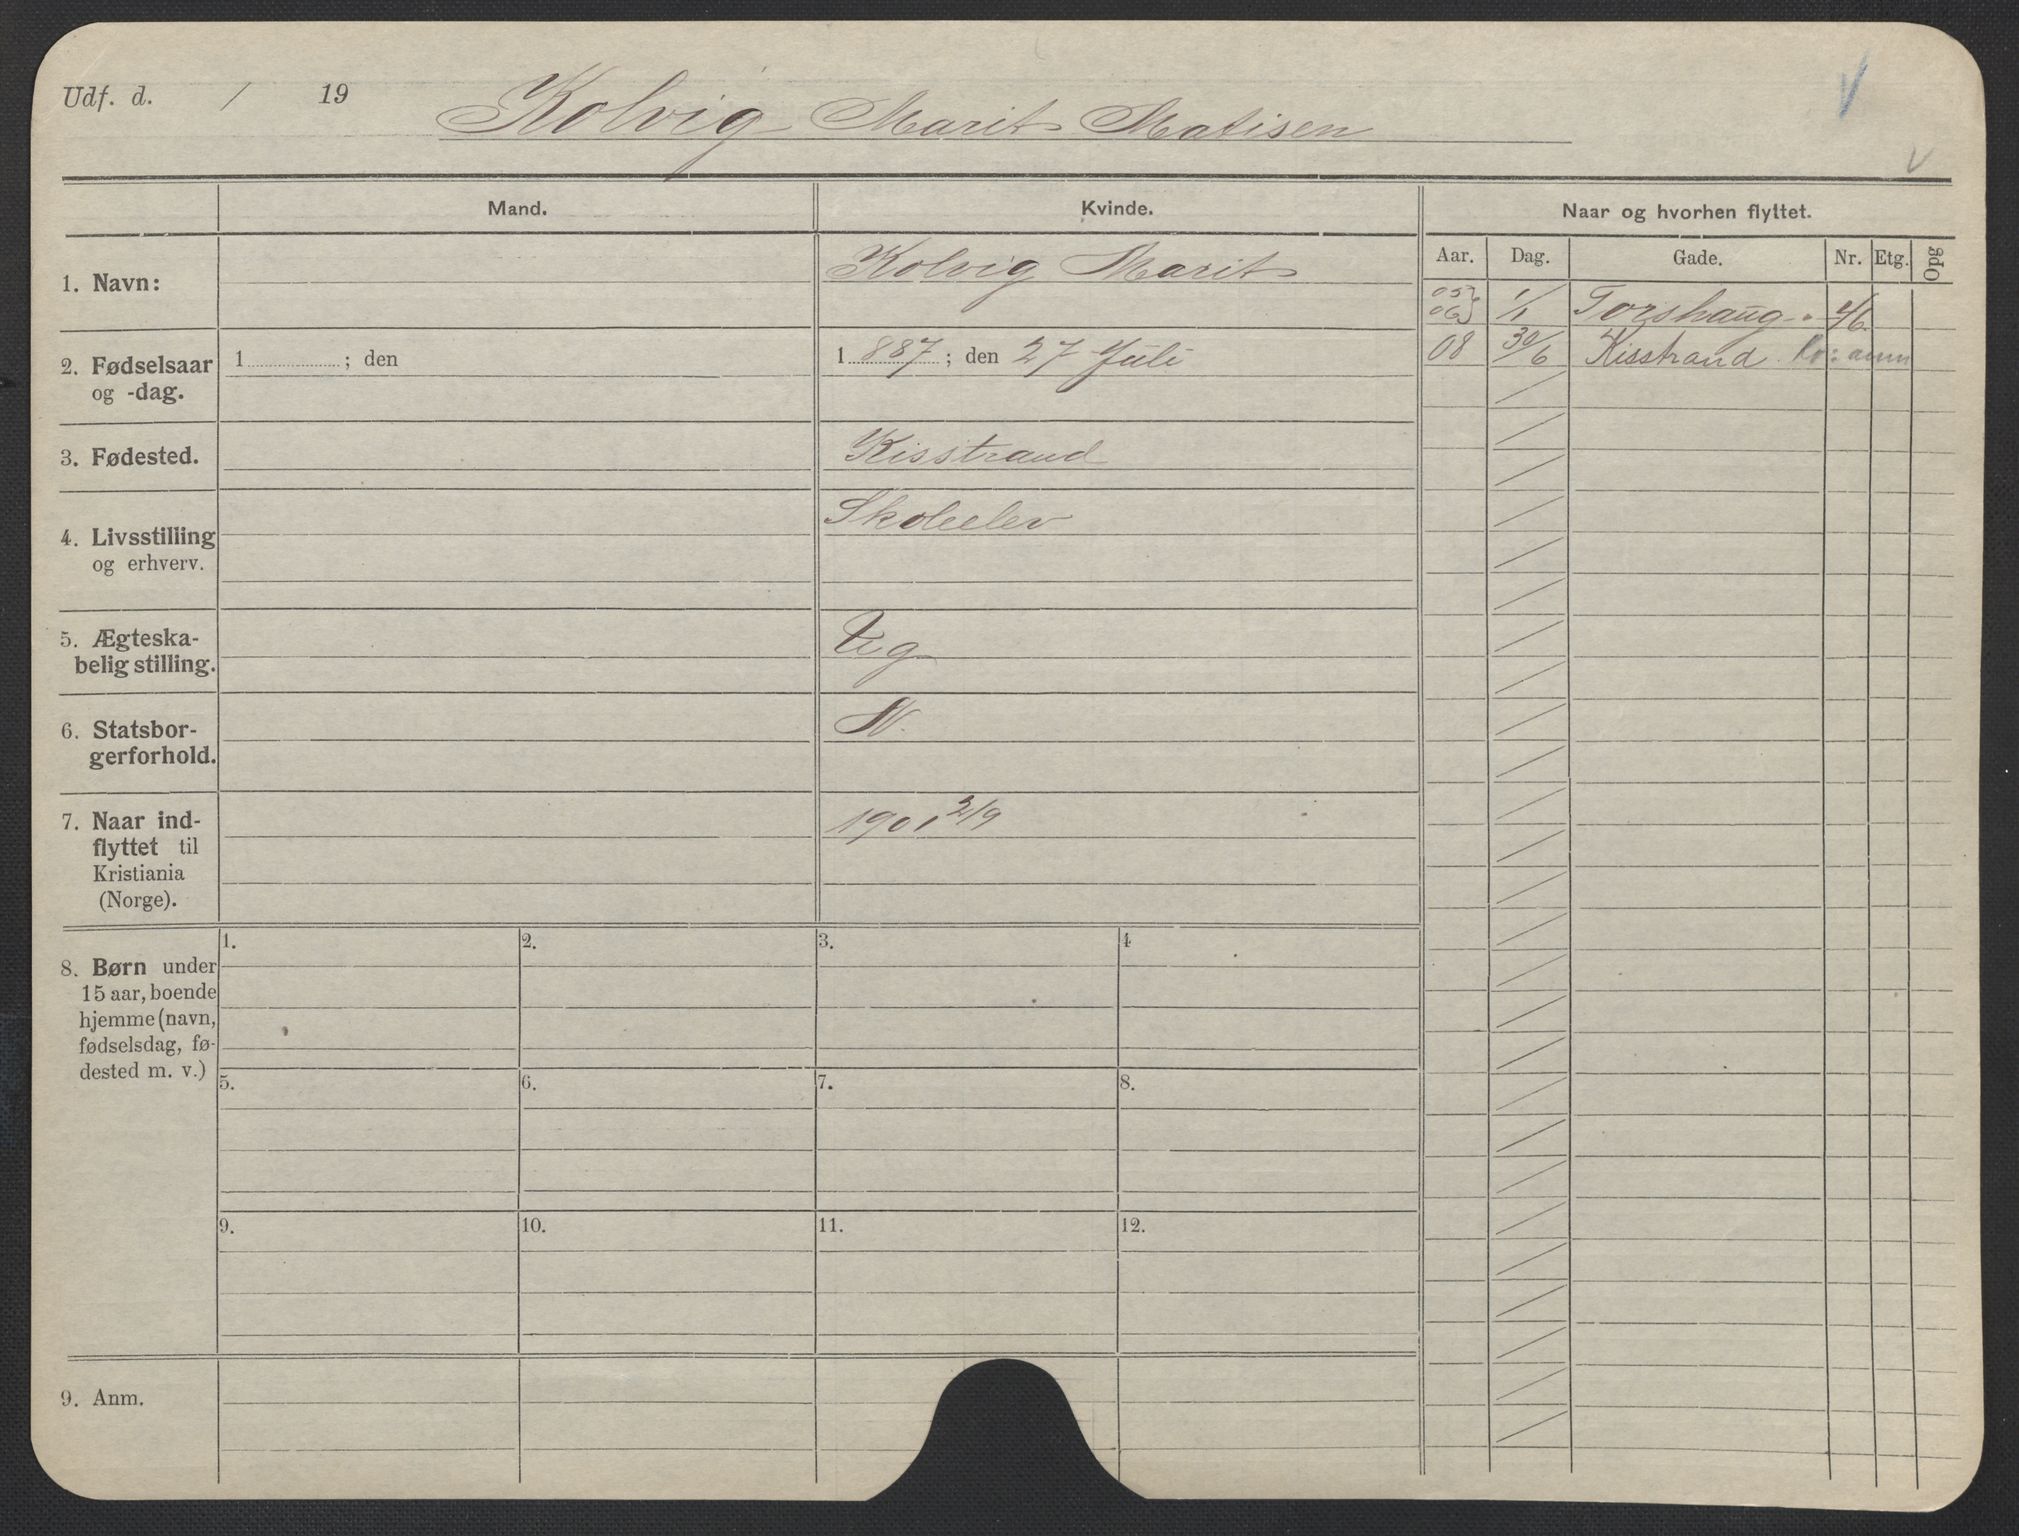 Udf. d. / 19
Kolvig Marit Matisen
Mand. Kvinde. Naar og hvorhen flyttet.
Aar. Dag. Gade. Nr. Etg. Opg
1. Navn: Kolvig Marit
05 06 1/1 Torshaug
08 30/6 Kisstrand
2. Fødselsaar 1 ; den 1 887 ; den 27 Juli
og -dag.
3. Fødested. Kisstrand
4. Livsstilling Skoleelev
og erhverv.
5. Ægteska-
belig stilling. Ug
6. Statsbor- N.
gerforhold.
7. Naar ind- 1901 2/9
flyttet til
Kristiania
(Norge).
8. Børn under
15 aar, boende
hjemme (navn,
fødselsdag, fø-
dested m. v.)
1. 2. 3. 4
5. 6. 7. 8.
9. 10. 11. 12.
9. Anm.